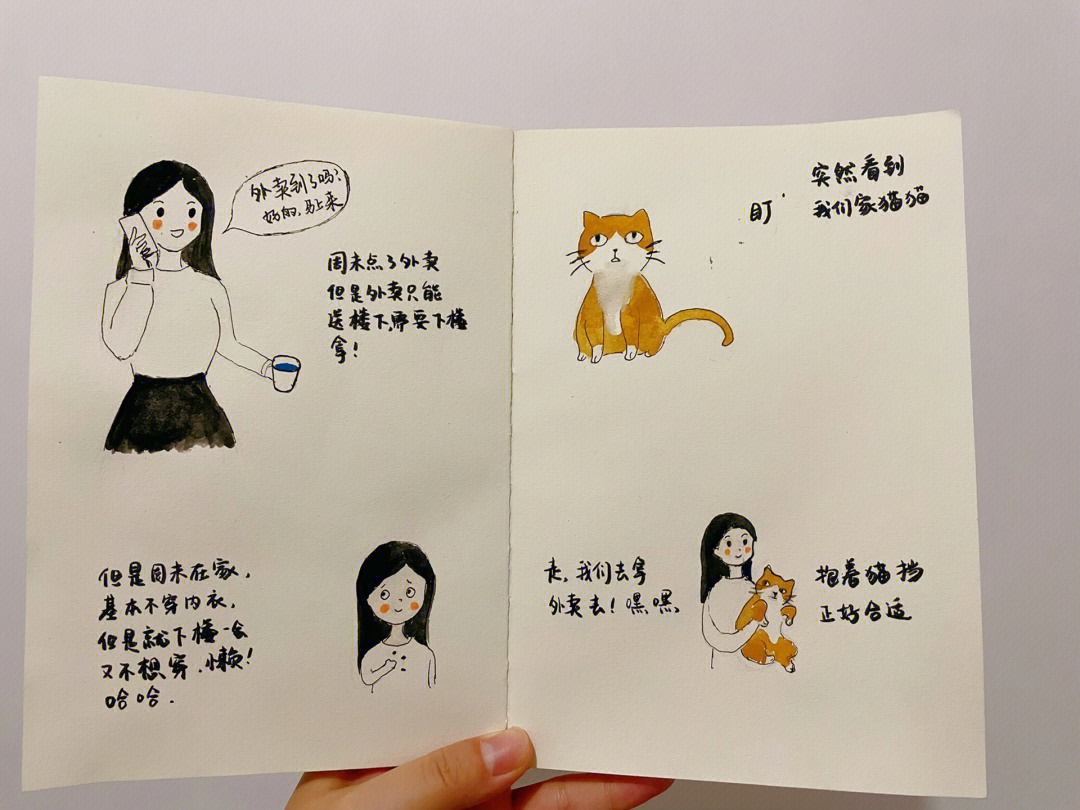 外卖到了吗?
好的,马上来
周末点了外卖
但是外卖只能
送楼下,需要下楼
拿!
但是周末在家,
基本不穿内衣,
但是就下楼一会
又不想穿,懒!
哈哈.
盯
突然看到
我们家猫猫
走,我们去拿
外卖去!嘿嘿
抱着猫挡
正好合适